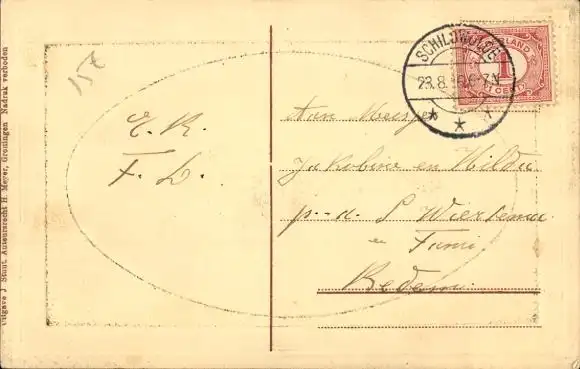 Uitgave J. Smit. Auteursrecht H. Meyer, Groningen Nadruk verboden
15c
E. K.
F. D.
SCHILDWOLDE
23.8. 6-7N
NEDERLAND
1
CENT
Aan Meisjes
Jakobina en Hilda
p-a. S Wiersema
en
Fam.
Bedum.